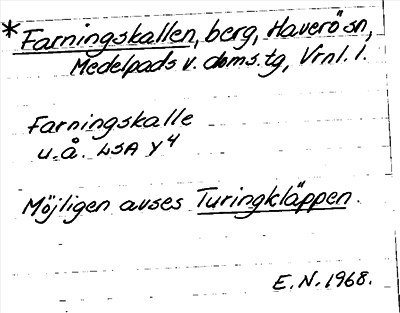 *Farningskallen, berg, Haverö sn,
Medelpads v. doms.tg, Vrnl. l.
Farningskalle
u.å. LSA Y4
Möjligen avses Turingkläppen.
E.N. 1968.